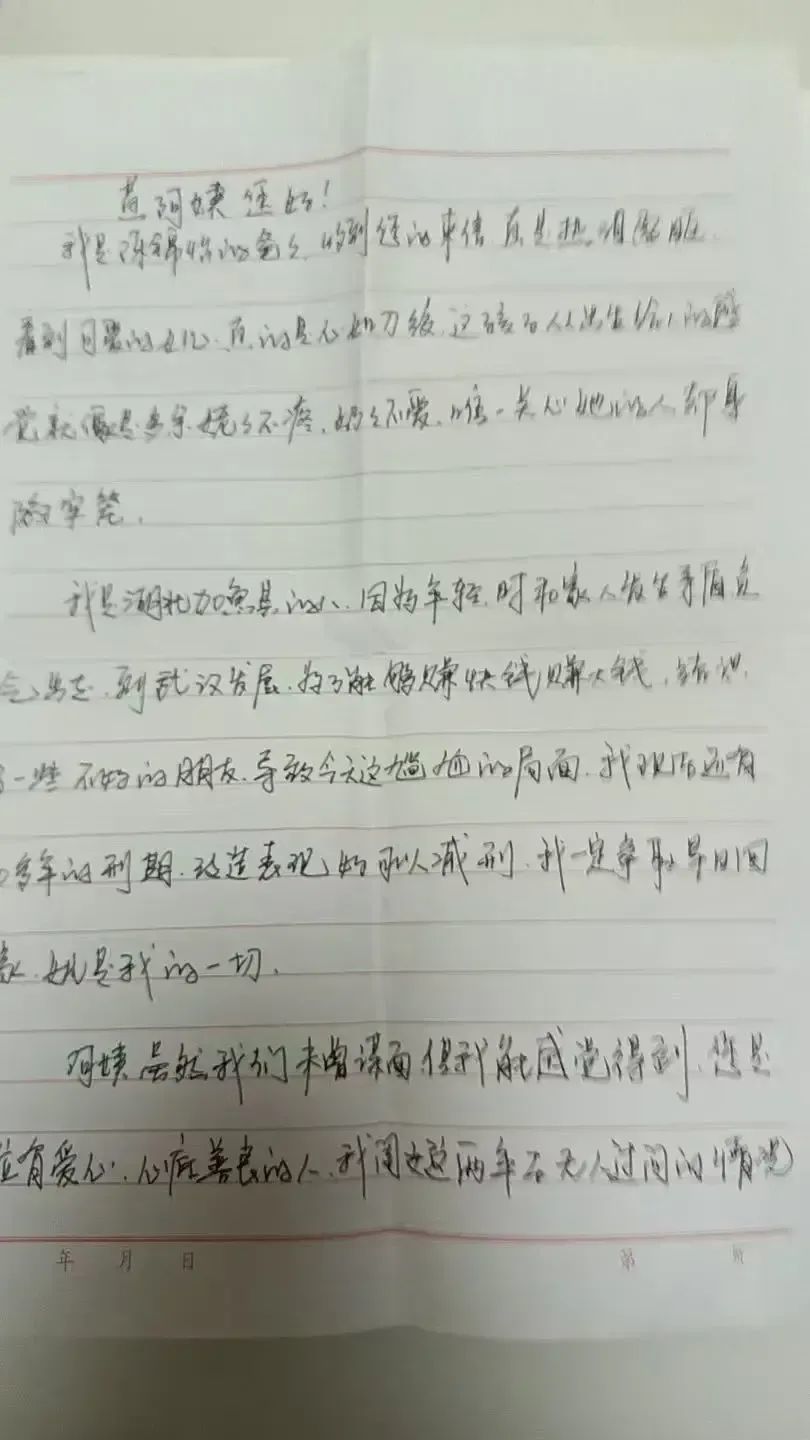 阿姨您好!
我是陈锦怡的爸爸,收到您的来信真是热泪盈眶.
看到日思的女儿,真的是心如刀绞,这孩子从出生给人的感
觉就像是多余,姥姥不疼,奶奶不爱,唯一关心她的人却身
陷牢笼.
我是湖北加鱼县的人,因为年轻时和家人发生矛盾负
气出走,到武汉发展,为了能够赚快钱赚大钱,结识
一些不好的朋友,导致今天这尴尬的局面,我现在还有
多年的刑期,改造表现好可以减刑,我一定争取早日回
家,女儿是我的一切.
阿姨虽然我们未曾谋面但我能感觉得到,您是
位有爱心,心底善良的人,我闺女这两年在无人过问的情况
年 月 日 第 页